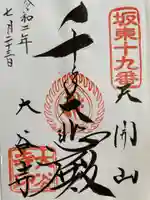 坂東十九番
天開山
千手大悲殿
大谷寺
令和二年
七月二十三日